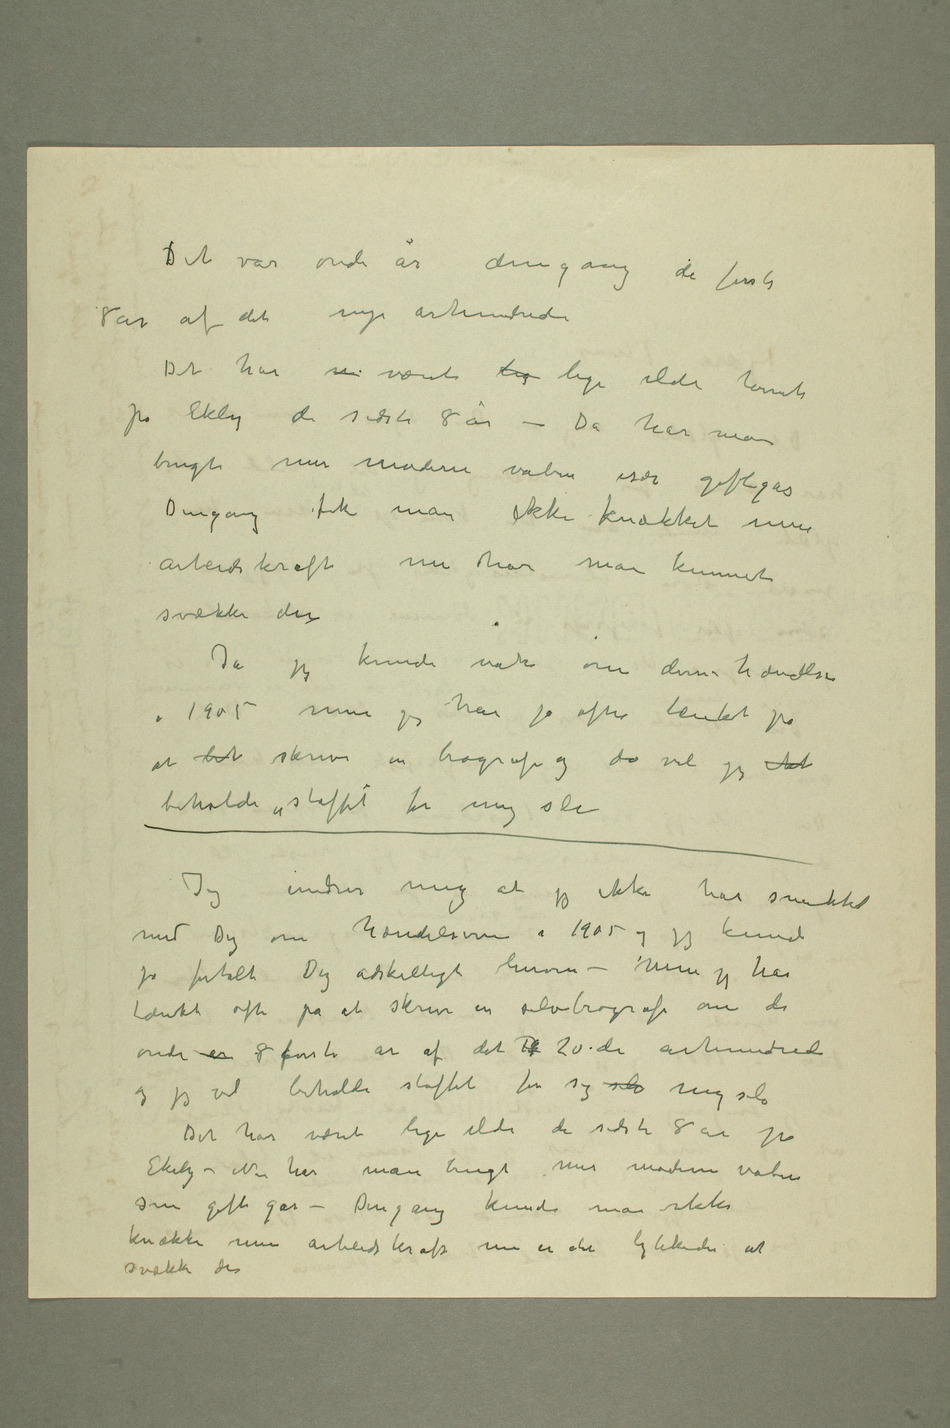 Det var onde år dengang de første
8 år af det nye århundrede
Det har nu været lig lige ilde tænkt
på Ekely de sidste 8 år – Da har man
brugt mer moderne våben især giftgas
Dengang fik man ikke knækket min
arbeidskraft nu har man kunnet
svække den
Ja jeg kunde om denne hændelse
i 1905 men jeg har jo ofte tænkt på
at skrive en biografi og da vil jeg
beholde „stoffet" for mig selv
Jeg indrer mig at jeg ikke har snakket
med Dig om hændelserne i 1905 og jeg kunde
jo fortalt Dig adskilligt herom – Men jeg har
tænkt ofte på at skrive en selvbiografi om de
onde 8 første år af det 20.de århundrede
og jeg vil beholde stoffet for sig selv mig selv
Det har været lige ilde de sidste 8 år på
Ekely – Nu har man brugt mer moderne våben
som gift gas – Dengang kunde man ikke
knække min arbeidskraft nu er det lykkedes at
svække den